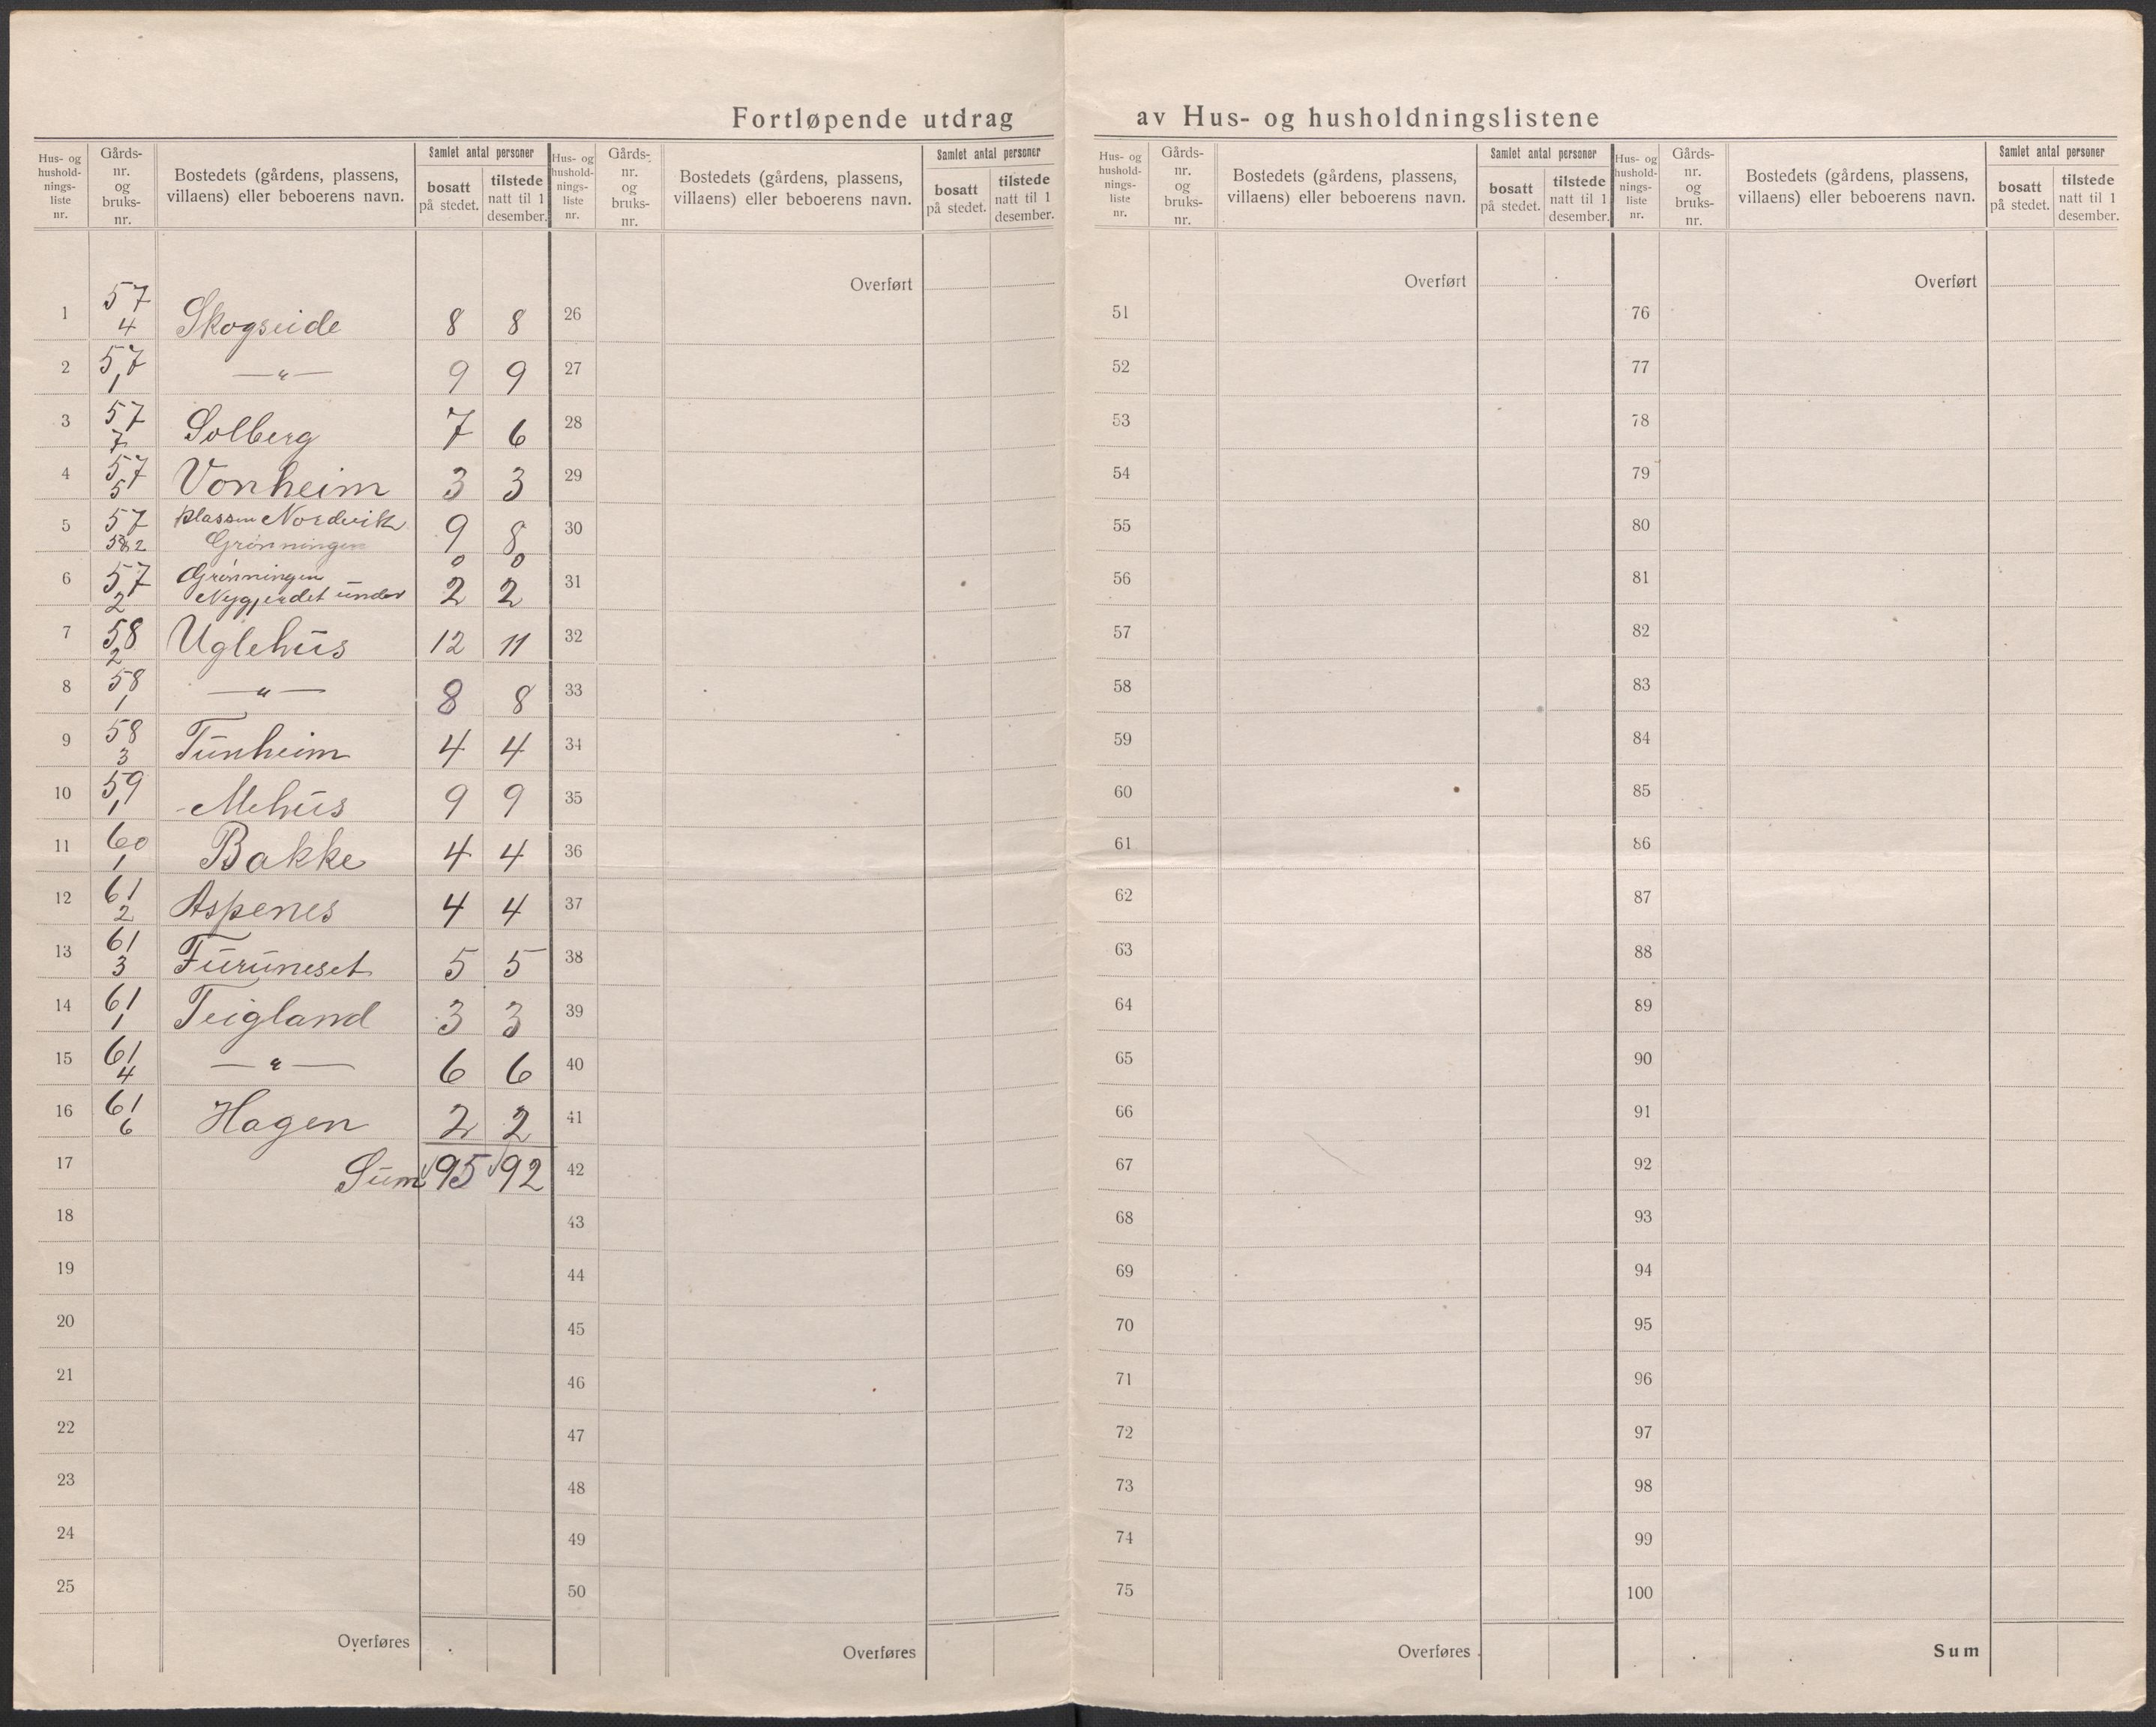 Fortløpende utdrag av Hus- og husholdningslistene
Hus- og hushold-nings-liste nr. | Gårds-nr. og bruks-nr. | Bostedets (gårdens, plassens, villaens) eller beboerens navn. | Samlet antal personer | bosatt på stedet. | tilstede natt til 1 desember.
1 57/4 Skogseide 8 8
2 57/1 —"— 9 9
3 57/7 Solberg 7 6
4 57/5 Vonheim 3 3
5 57 plassen Nordvik 9 8
Grønningen 0 0
6 57/2 Grønningen
Nygjerdet under 2 2
7 58/2 Uglehus 12 11
8 58/1 —"— 8 8
9 58/3 Tunheim 4 4
10 59/1 Mehus 9 9
11 60/1 Bakke 4 4
12 61/2 Aspenes 4 4
13 61/3 Furuneset 5 5
14 61/1 Teigland 3 3
15 61/4 —"— 6 6
16 61/6 Hagen 2 2
17 Sum 95 92
18
19
20
21
22
23
24
25
Overføres
Hus- og hushold-nings-liste nr. | Gårds-nr. og bruks-nr. | Bostedets (gårdens, plassens, villaens) eller beboerens navn. | Samlet antal personer | bosatt på stedet. | tilstede natt til 1 desember.
Overført
26
27
28
29
30
31
32
33
34
35
36
37
38
39
40
41
42
43
44
45
46
47
48
49
50
Overføres
Hus- og hushold-nings-liste nr. | Gårds-nr. og bruks-nr. | Bostedets (gårdens, plassens, villaens) eller beboerens navn. | Samlet antal personer | bosatt på stedet. | tilstede natt til 1 desember.
Overført
51
52
53
54
55
56
57
58
59
60
61
62
63
64
65
66
67
68
69
70
71
72
73
74
75
Overføres
Hus- og hushold-nings-liste nr. | Gårds-nr. og bruks-nr. | Bostedets (gårdens, plassens, villaens) eller beboerens navn. | Samlet antal personer | bosatt på stedet. | tilstede natt til 1 desember.
Overført
76
77
78
79
80
81
82
83
84
85
86
87
88
89
90
91
92
93
94
95
96
97
98
99
100
Sum